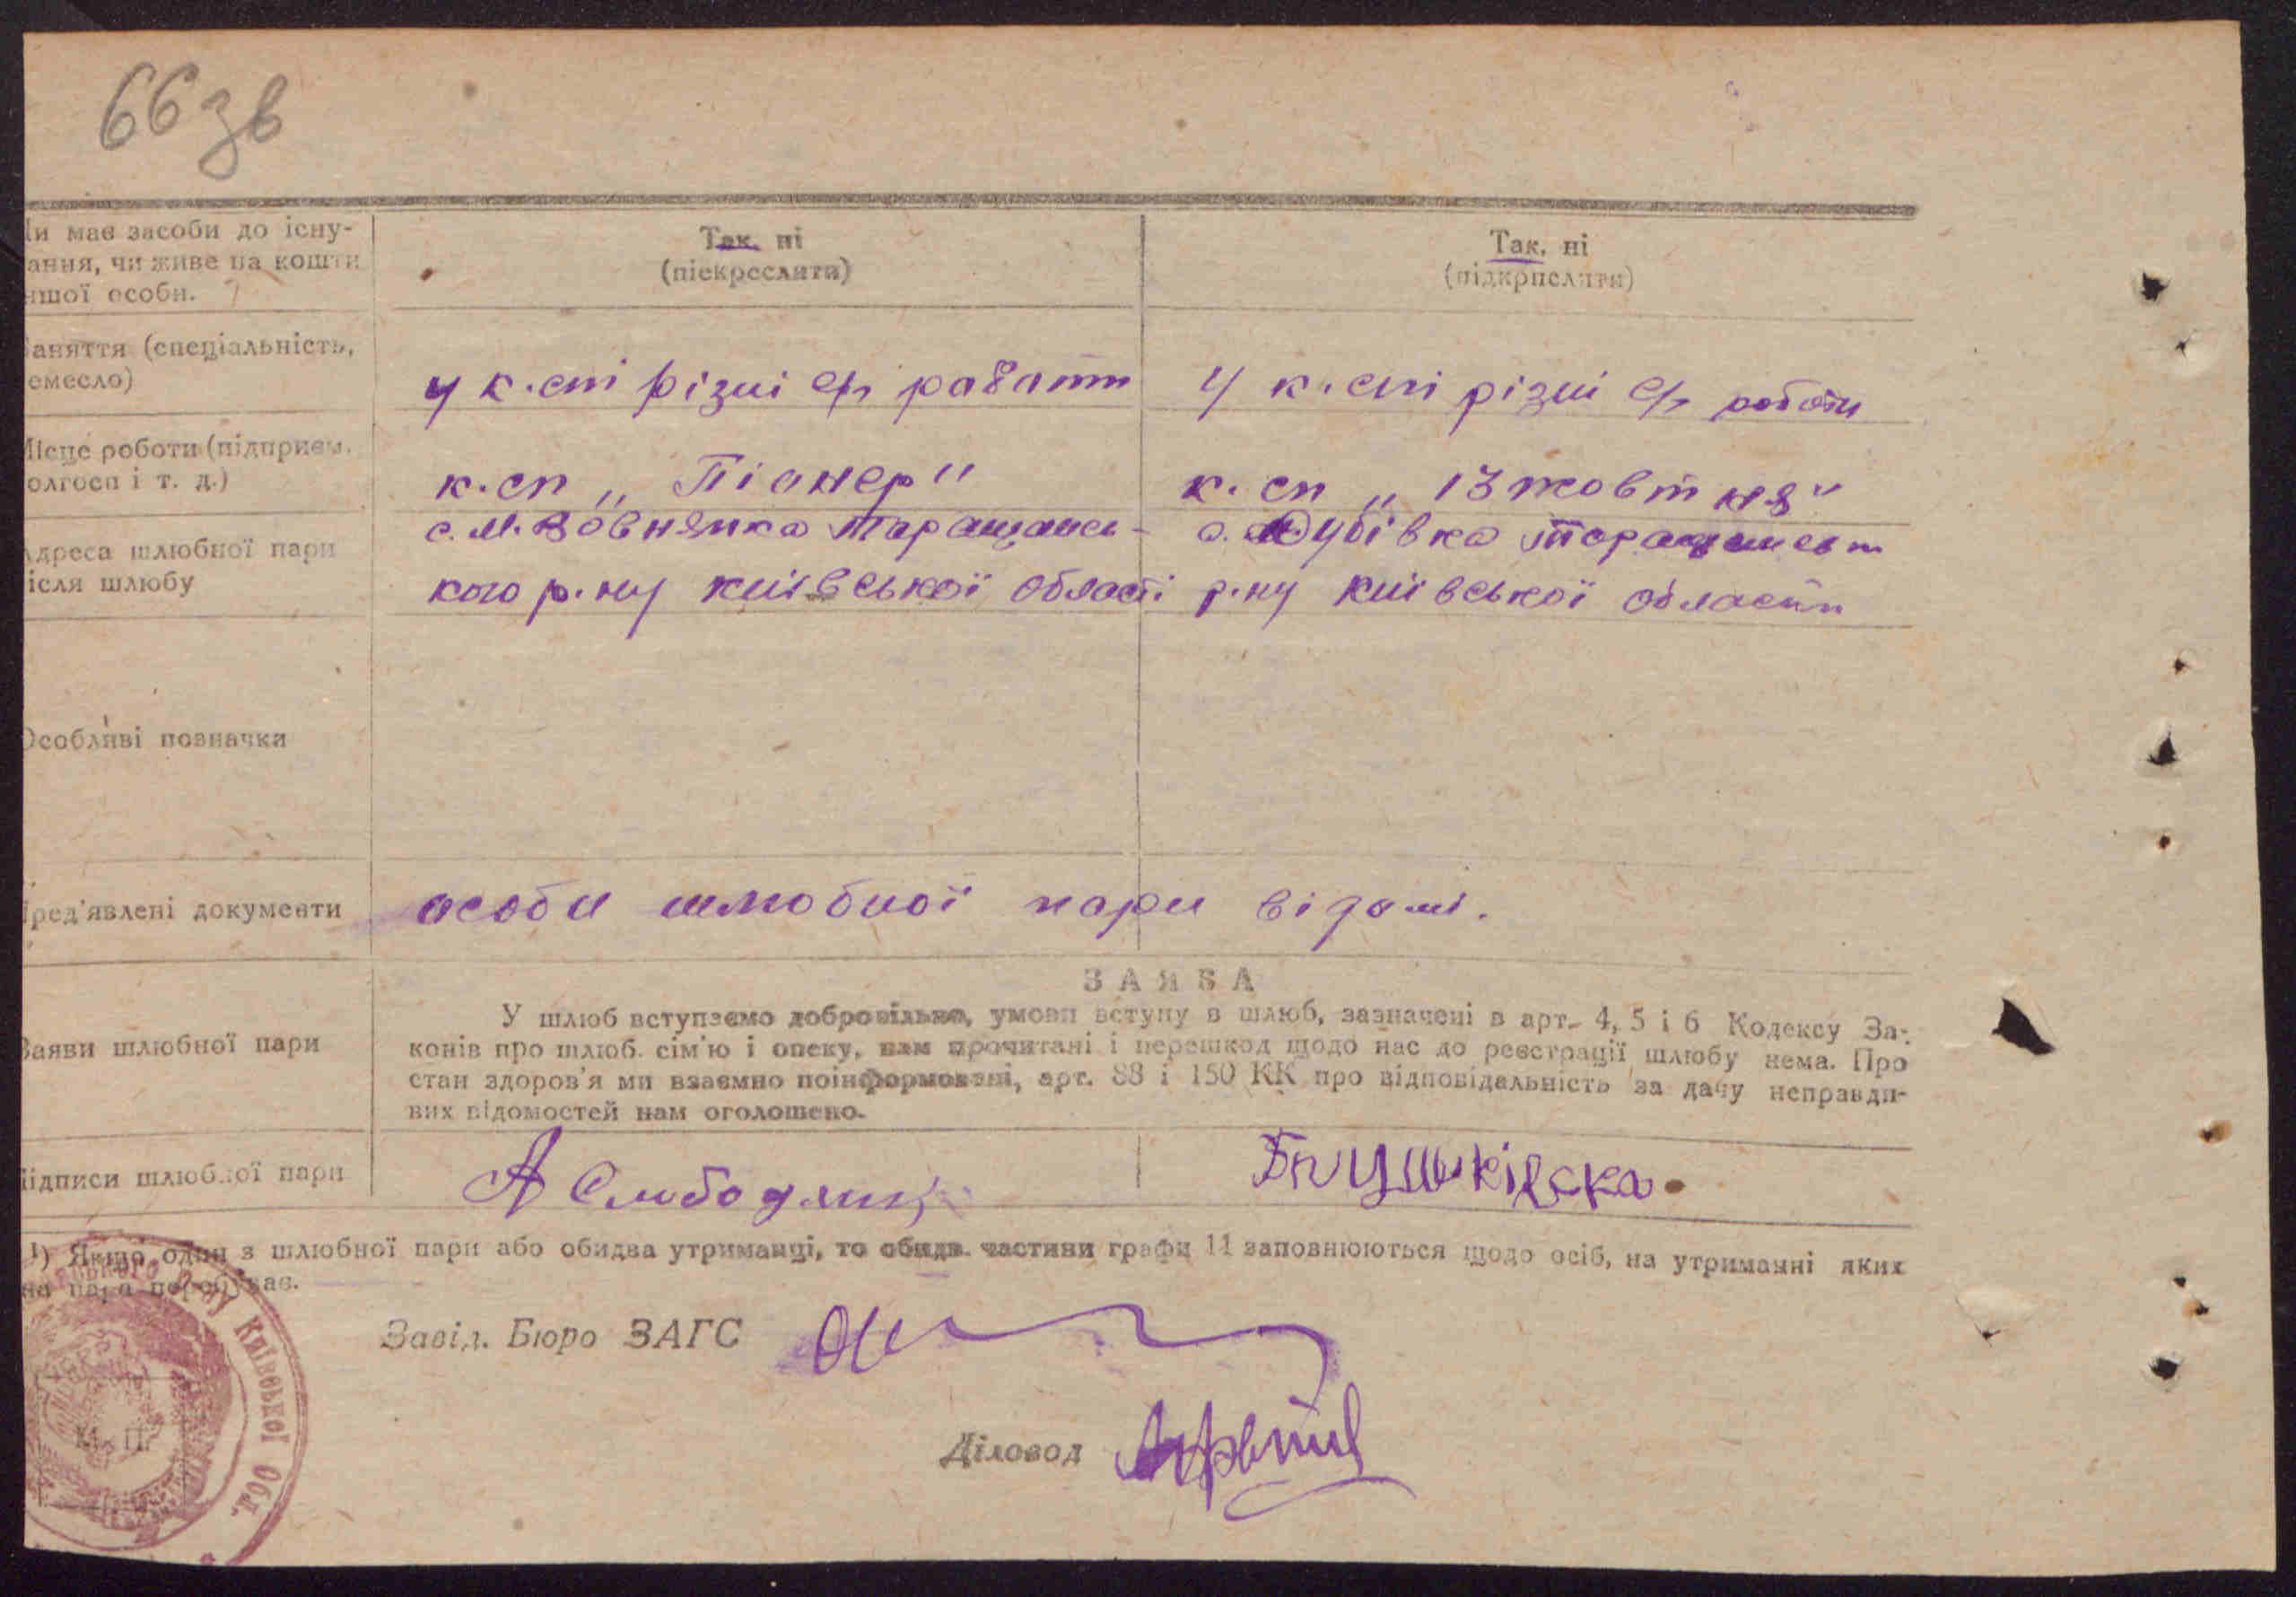 66 зв
Чи має засоби до існу-
вання, чи живе на кошти
іншої особи.
Так, ні
(підкреслити)
Так, ні
(підкрислити)
Заняття (спеціальність,
ремесло)
у к.сп різні с/г работи
у к.сп різні с/г роботи
Місце роботи (підприєм.
колгосп і т. д.)
к.сп „Піонер"
к.сп „13 жовтня"
Адреса шлюбної пари
після шлюбу
с. М. Вовнянка Таращансь-
кого р-ну київської області
с. Дубівка
р-ну київської области
Особливі позначки
Пред'явлені документи
особи шлюбної пари відомі.
Заяви шлюбної пари
ЗАЯВА
У шлюб вступаємо добровільно, умови вступу в шлюб, зазначені в арт. 4, 5 і 6 Кодексу За-
конів про шлюб. сім'ю і опеку, нам прочитані і перешкод щодо нас до реєстрації шлюбу нема. Про
стан здоров'я ми взаємно поінформовані, арт. 88 і 150 КК про відповідальність за дачу неправди-
вих відомостей нам оголошено.
Підписи шлюбної пари
А Слободян
1) Якщо один з шлюбної пари або обидва утриманці, то обидв. частини графи 11 заповнюються щодо осіб, на утриманні яких
ця пара перебуває.
Київської Обл.
М. П.
Завід. Бюро ЗАГС
Діловод